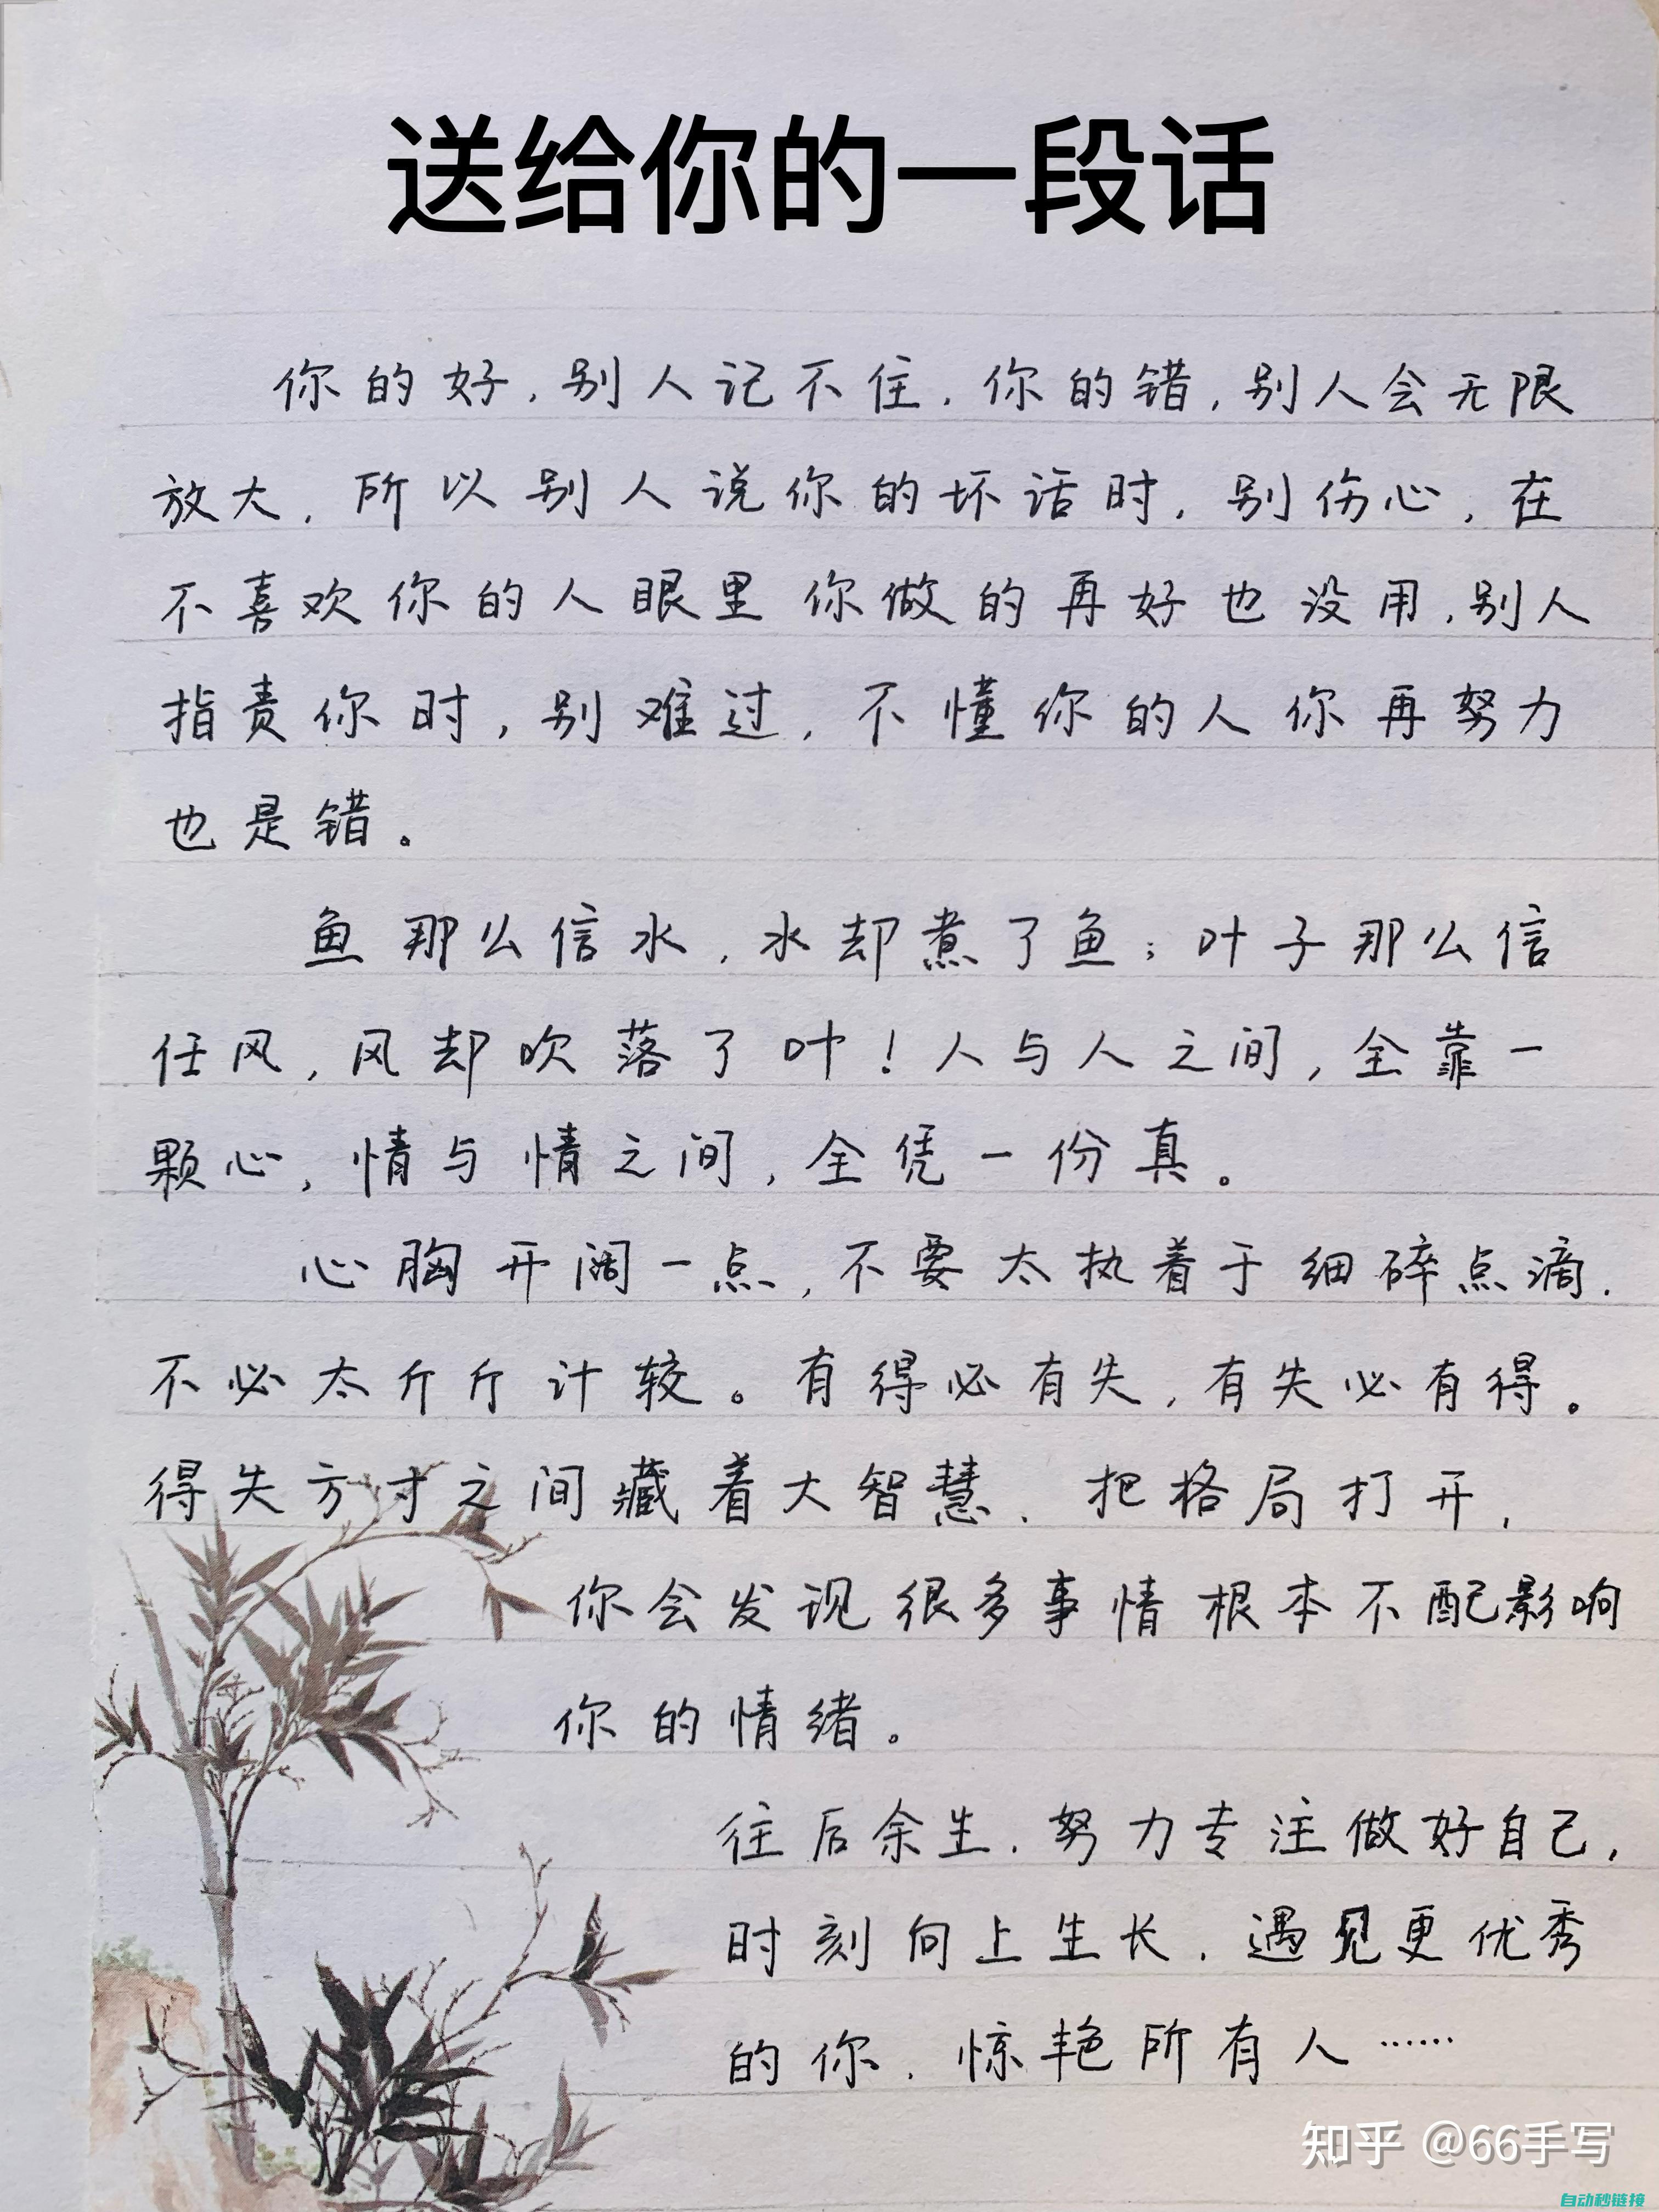 送给你的一段话
你的好,别人记不住,你的错,别人会无限
放大,所以别人说你的坏话时,别伤心,在
不喜欢你的人眼里你做的再好也没用,别人
指责你时,别难过,不懂你的人你再努力
也是错。
鱼那么信水,水却煮了鱼;叶子那么信
任风,风却吹落了叶!人与人之间,全靠一
颗心,情与情之间,全凭一份真。
心胸开阔一点,不要太执着于细碎点滴,
不必太斤斤计较。有得必有失,有失必有得。
得失方寸之间藏着大智慧,把格局打开,
你会发现很多事情根本不配影响
你的情绪。
往后余生,努力专注做好自己,
时刻向上生长,遇见更优秀
的你,惊艳所有人……
知乎 @66手写
自动秒链接